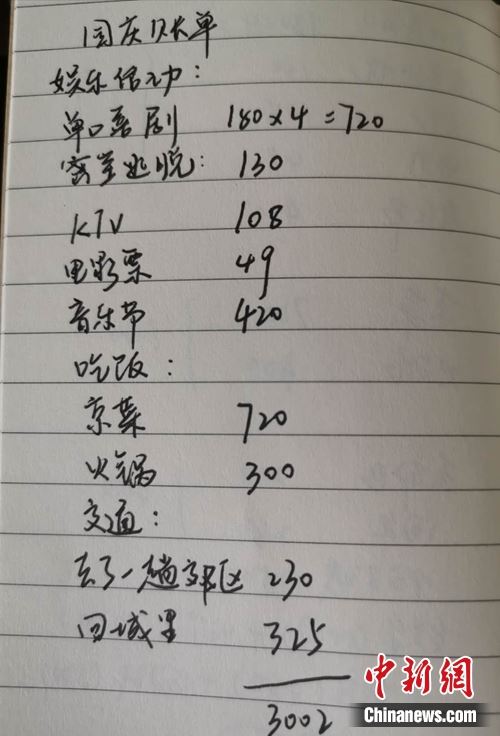 国庆账单
娱乐活动：
单口喜剧 180×4=720
密室逃脱：130
KTV 108
电影票 49
音乐节 420
吃饭：
京菜 720
火锅 300
交通：
去了一趟郊区 230
回城里 325
3002
中新网
Chinanews.com